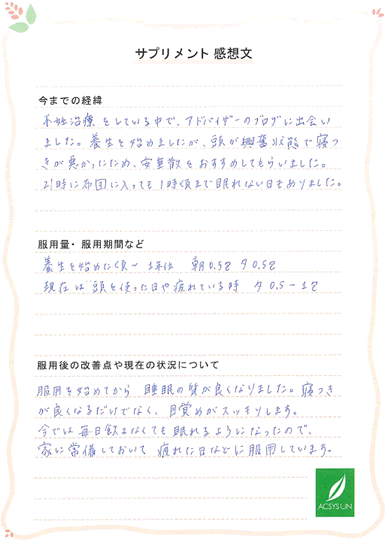 サプリメント 感想文
今までの経緯
不妊治療をしている中で、アドバイザーのブログに出会い
ました。養生を始めましたが、頭が興奮状態で寝つ
きが悪かったため、安亜散をおすすめしてもらいました。
21時に布団に入っても1時頃まで眠れない日もありました。
服用量・服用期間など
養生を始めた頃〜 1年位 朝0.5g 夕0.5g
現在は 頭を使った日や疲れている時 夕0.5〜1g
服用後の改善点や現在の状況について
服用を始めてから 睡眠の質が良くなりました。寝つき
が良くなるだけでなく、目覚めがスッキリします。
今では毎日飲まなくても眠れるようになったので、
家に常備しておいて 疲れた日などに服用しています。
ACSYSUN